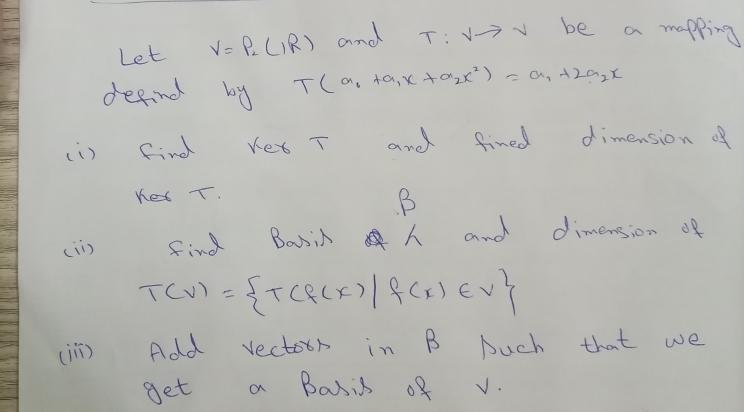 Let V = P₂(ℝ) and T: V → V be a mapping
defind by T(a₀ + a₁x + a₂x²) = a₁ + 2a₂x
(i) Find Ker T and fined dimension of
Ker T.
(ii) Find Basis β and dimension of
T(V) = {T(f(x) | f(x) ∈ V}
(iii) Add vectors in β such that we
get a Basis of V.